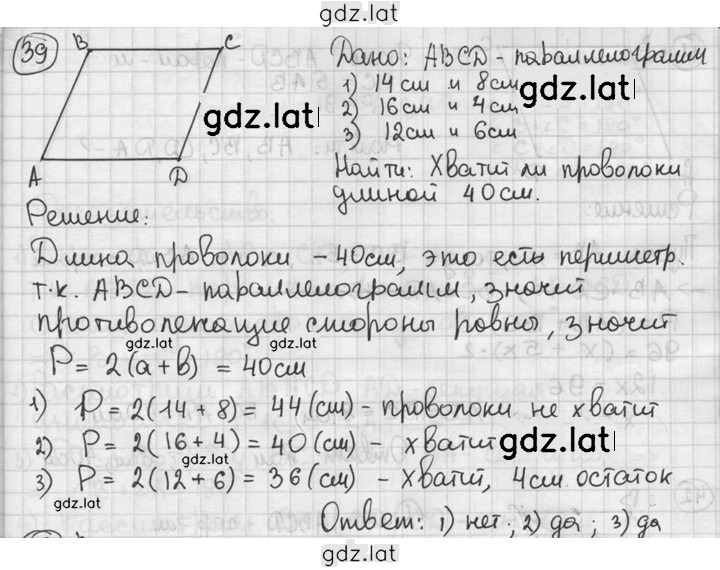 gdz.lat
39
B C
A D
Дано: ABCD - параллелограмм
1) 14 см и 8 см
2) 16 см и 4 см
3) 12 см и 6 см
gdz.lat
Найти: Хватит ли проволоки
длиной 40 см.
Решение:
Длина проволоки - 40 см, это есть периметр.
т.к. ABCD - параллелограмм, значит
противолежащие стороны равны, значит
gdz.lat
P = 2(a+b) = 40 см
1) P = 2(14 + 8) = 44 (см) - проволоки не хватит
2) P = 2(16 + 4) = 40 (см) - хватит
gdz.lat
gdz.lat
3) P = 2(12 + 6) = 36 (см) - хватит, 4 см остаток
gdz.lat
Ответ: 1) нет; 2) да; 3) да
gdz.lat